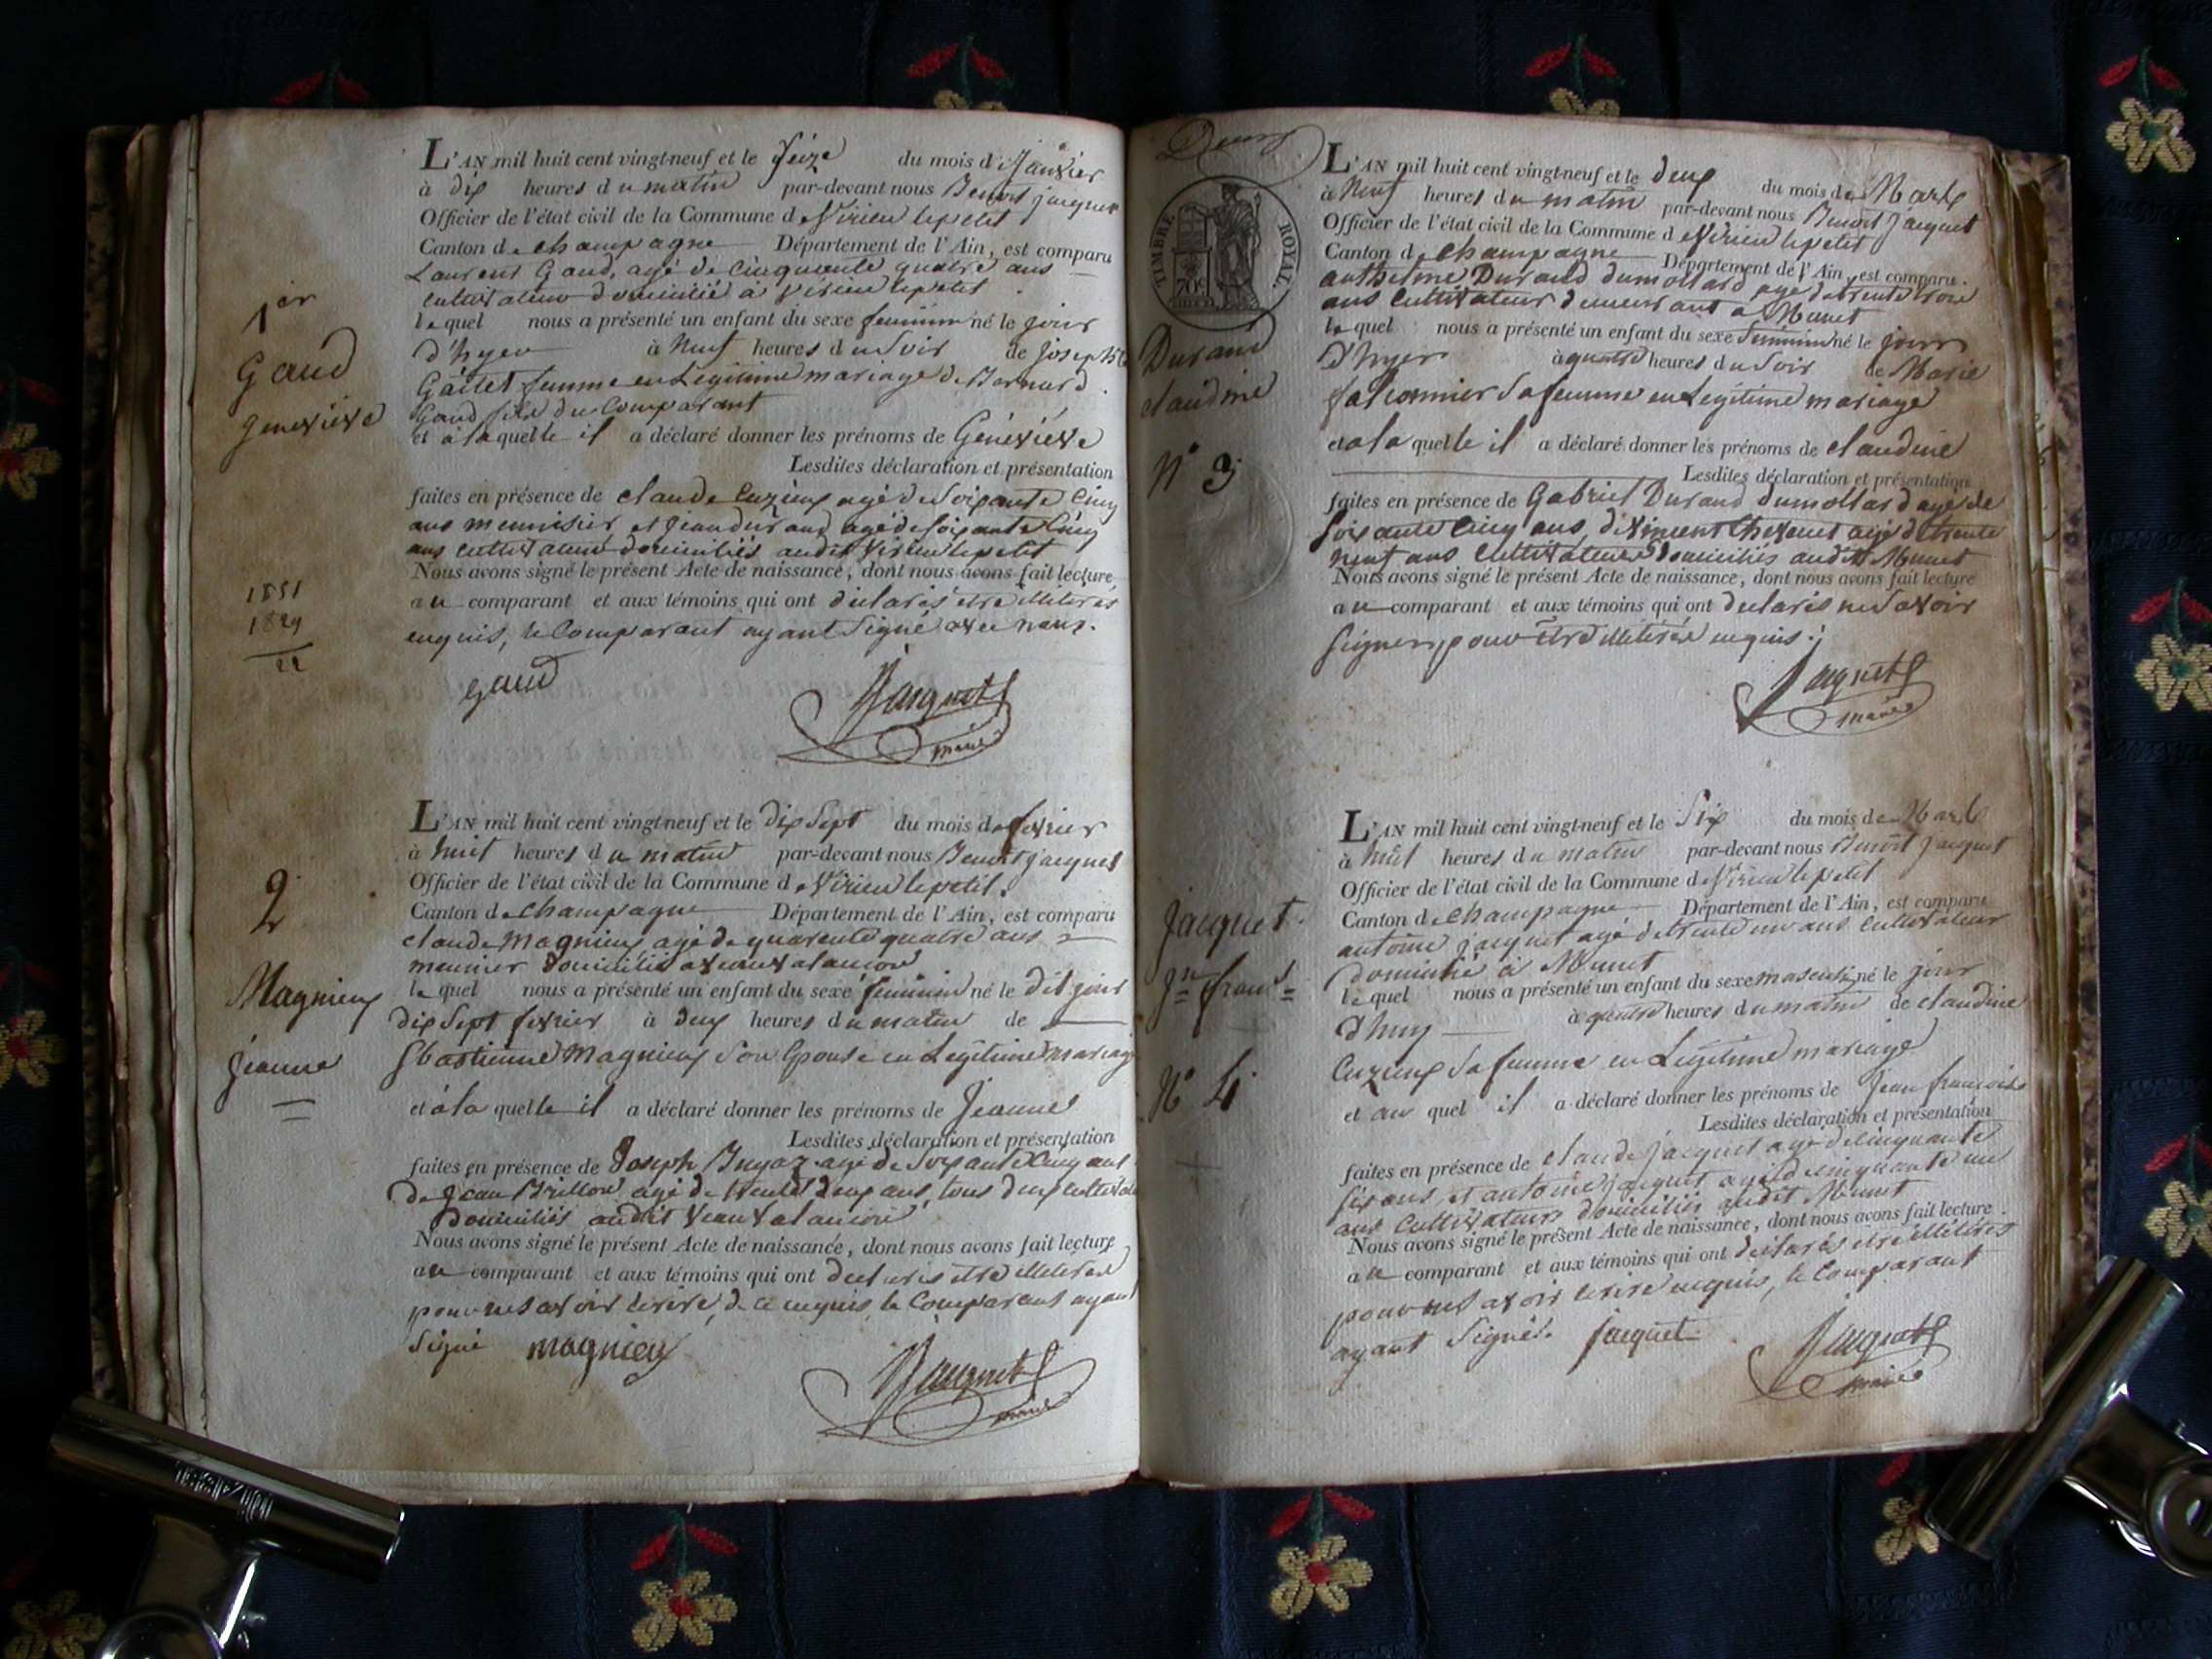 1er
Gaud
Genevieve
1851
1829
22
L'AN mil huit cent vingt-neuf et le seize du mois de Janvier
à dix heures du matin par-devant nous Benoit jacquet
Officier de l'état civil de la Commune de Virieu lepetit
Canton de champagne Département de l'Ain, est comparu
Laurent Gaud, agé de Cinquante quatre ans
cultivateur domicilié à Virieu lepetit
lequel nous a présenté un enfant du sexe feminin né le jour
d'hyer à Neuf heures du Soir de josephte
femme en Legitime mariage de Bernard
Gaud fils du Comparant
et à laquelle il a déclaré donner les prénoms de Géneviève
Lesdites déclaration et présentation
faites en présence de claude Cuzieux agé de Soixante Cinq
ans menuisier et jean durand agé de soixante Cinq
ans cultivateurs domiciliés audit Virieu lepetit
Nous avons signé le présent Acte de naissance, dont nous avons fait lecture
au comparant et aux témoins qui ont déclarés être illiterés
enquis, le Comparant ayant Signé avec nous.
gaud
Jacquet
maire
2
Magnieux
jeanne
L'AN mil huit cent vingt-neuf et le dix Sept du mois de fevrier
à huit heures du matin par-devant nous Benoit jacquet
Officier de l'état civil de la Commune de Virieu lepetit.
Canton de champagne Département de l'Ain, est comparu
claude Magnieux agé de quarente quatre ans
meunier domicilié
lequel nous a présenté un enfant du sexe feminin né le dit jour
dix Sept fevrier à deux heures du matin de
Sbastienne Magnieux son Epouse en Legitime mariage
et à laquelle il a déclaré donner les prénoms de Jeanne
Lesdites déclaration et présentation
faites en présence de Joseph agé de Soixante Cinq ans
de Jean Brillon agé de trente deux ans, tous deux
domiciliés audit
Nous avons signé le présent Acte de naissance, dont nous avons fait lecture
au comparant et aux témoins qui ont declarés être illiterés
pour ne savoir ecrire, de ce enquis le Comparant ayant
signé magnieux
Jacquet
maire
Deux
TIMBRE ROYAL.
70c
Durand
claudine
N° 3
L'AN mil huit cent vingt-neuf et le deux du mois de Mars
à Neuf heures du matin par-devant nous Benoit Jacquet
Officier de l'état civil de la Commune de Virieu lepetit
Canton de champagne Département de l'Ain, est comparu.
anthelme Durand dumollard agé de trente trois
ans Cultivateur demeurant à Munet
lequel nous a présenté un enfant du sexe feminin né le jour
D'hyer à quatre heures du Soir de Marie
falconnier Sa femme en Legitime mariage
et a la quelle il a déclaré donner les prénoms de claudine
Lesdites déclaration et présentation
faites en présence de Gabriel Durand dumollard agé de
soixante Cinq ans, agé de trente
neuf ans Cultivateurs domiciliés audit Munet
Nous avons signé le présent Acte de naissance, dont nous avons fait lecture
au comparant et aux témoins qui ont declarés ne Savoir
signer, pour être illiterés enquis.
Jacquet
maire
Jacquet.
Jn frans
N° 4
L'AN mil huit cent vingt-neuf et le Six du mois de Mars
à huit heures du matin par-devant nous Benoit Jacquet
Officier de l'état civil de la Commune de Virieu lepetit
Canton de champagne Département de l'Ain, est comparu
antoine jacquet agé de trente un ans Cultivateur
domicilié à Munet
lequel nous a présenté un enfant du sexe masculin né le jour
d'huy à quatre heures du matin de claudine
Cuzieux Sa femme en Legitime mariage
et au quel il a déclaré donner les prénoms de Jean francois
Lesdites déclaration et présentation
faites en présence de claude jacquet agé de cinquante
six ans et antoine jacquet agé de cinquante un
ans Cultivateurs domiciliés audit Munet
Nous avons signé le présent Acte de naissance, dont nous avons fait lecture
au comparant et aux témoins qui ont declarés être illiterés
pour ne savoir ecrire enquis, le Comparant
ayant Signé. jacquet
Jacquet
maire